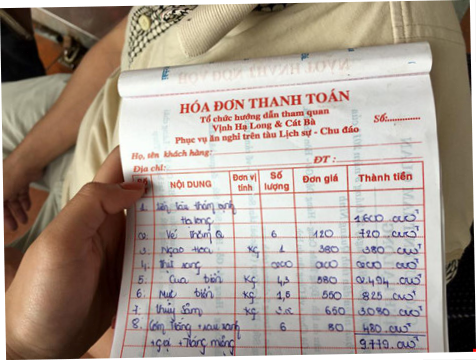 HÓA ĐƠN THANH TOÁN
Tổ chức hướng dẫn tham quan
Vịnh Hạ Long & Cát Bà
Số:............
Phục vụ ăn nghỉ trên tàu Lịch sự - Chu đáo
Họ, tên khách hàng:
Địa chỉ: ĐT:
NỘI DUNG Đơn vị tính Số lượng Đơn giá Thành tiền
1. tàu thăm
Hạ long 1600.000đ
2. Vé Thăm Q. 6 120 720.000đ
3. Ngao Hoa kg 1 380 380.000đ
4. 000 000 200.000đ
5. Cua biển kg 4,3 580 2.494.000đ
6. Mực biển kg 1,5 550 825.000đ
7. kg 650 3.080.000đ
8. Cơm trắng + rau xanh 6 80 480.000đ
+ + tráng miệng 9.779.000đ